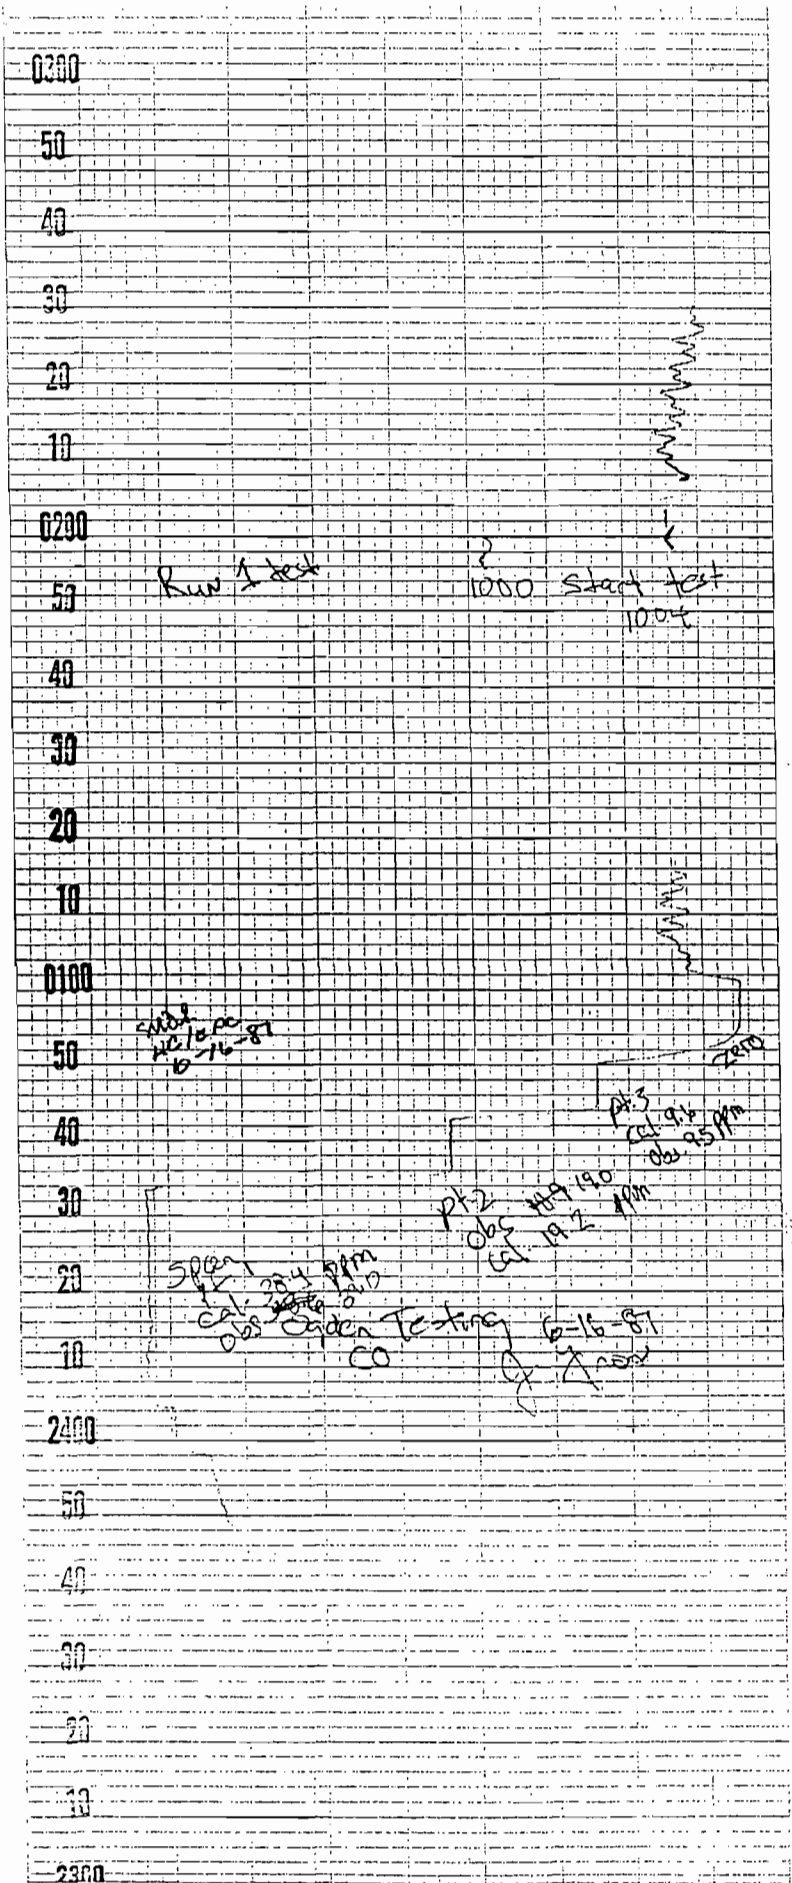 0300
50
40
30
20
10
0200
Run 1 test
1000 Start test
1004
50
40
30
20
10
0100
6-16-87
50
zero
pt.3
cal. 9.6
obs. 9.5 ppm
40
30
pt.2
obs 19.0
cal. 19.2 ppm
20
Span
cal. 38.4 ppm
obs
Ogden Testing 6-16-87
CO
10
2400
50
40
30
20
10
2300